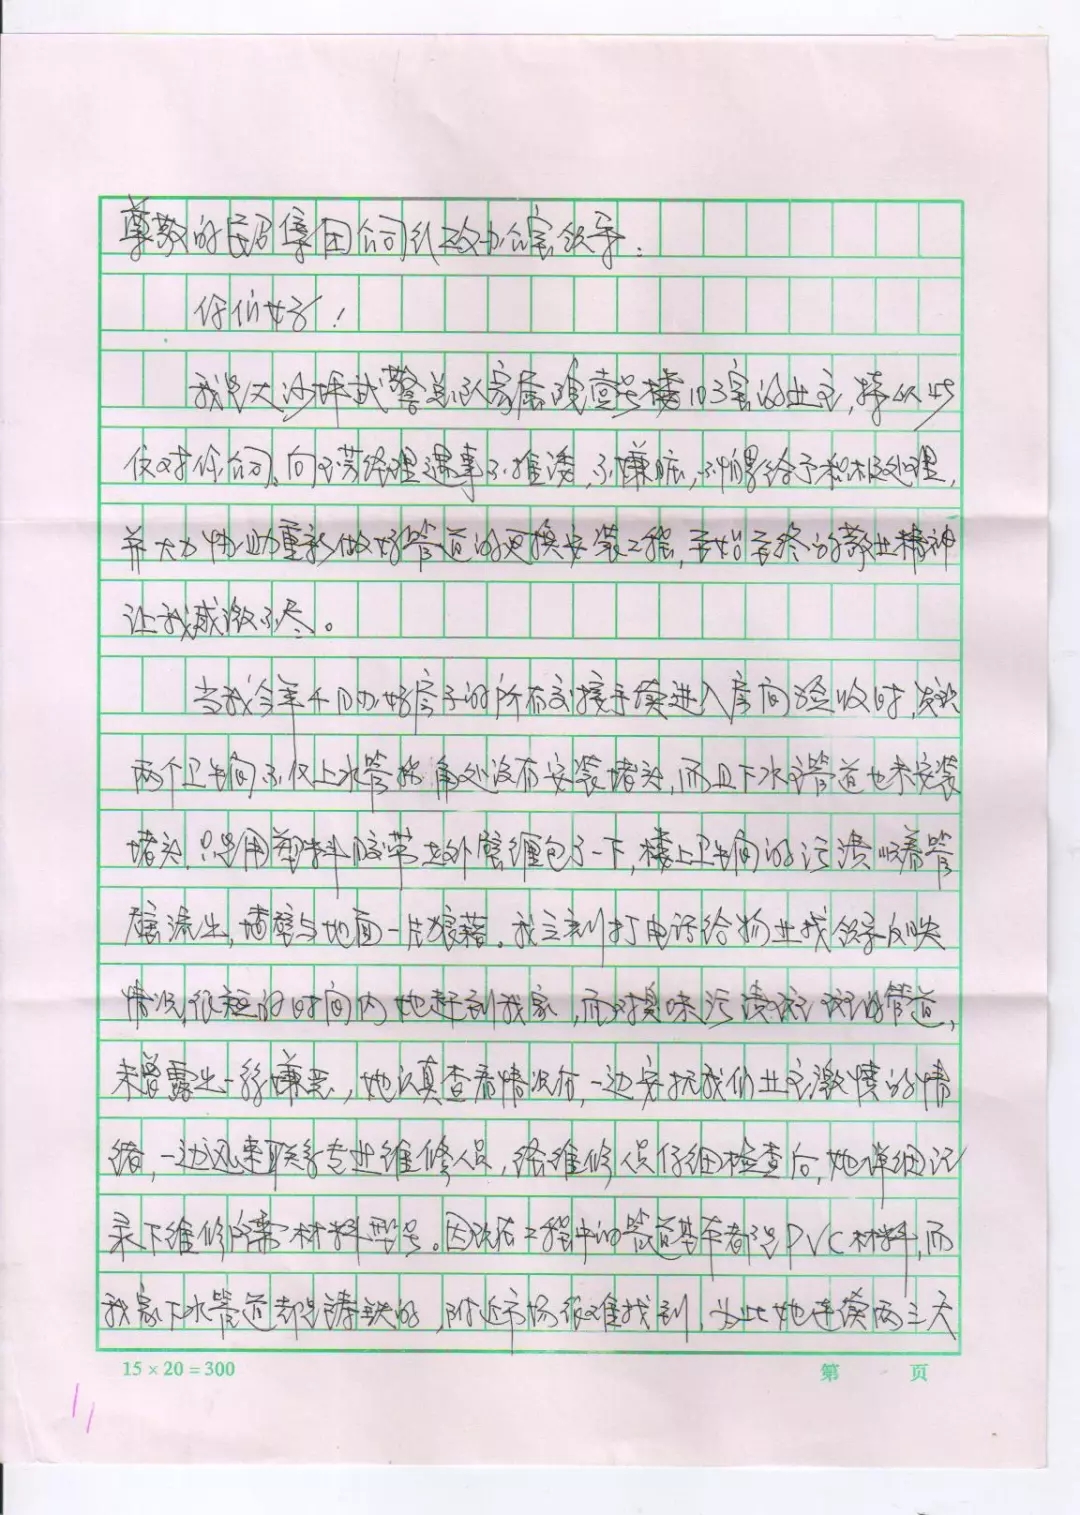 尊敬的民召集团公司行政办公室领导：
你们好！
我是大沙坪武警总队家属院壹号楼103室的业主，特以此
仅对你公司、向芳经理遇事不推诿，不嫌脏，不怕累给予积极处理，
并大力协助重新做好管道的更换安装工程，至始至终的敬业精神
让我感激不尽。
当我今年4月办好房子的所有交接手续进入房间验收时，发现
两个卫生间不仅上水管拐角处没有安装堵头，而且下水主管道也未安装
堵头，只是用塑料胶带在外壁缠包了一下，楼上卫生间的污渍顺着管
壁流出，墙壁与地面一片狼藉。我立刻打电话给物业找领导反映
情况，很短的时间内她赶到我家，面对臭味污渍斑斑的管道，
未曾露出一丝嫌恶，她认真查看情况后，一边安抚我们业主激愤的情
绪，一边迅速联系专业维修人员，给维修人员仔细检查后，她详细记
录下维修所需材料型号。因现在工程中的管道基本都是PVC材料，而
我家下水管道却是铸铁的，附近市场很难找到，为此她连续两三天
15×20=300
第 页
11